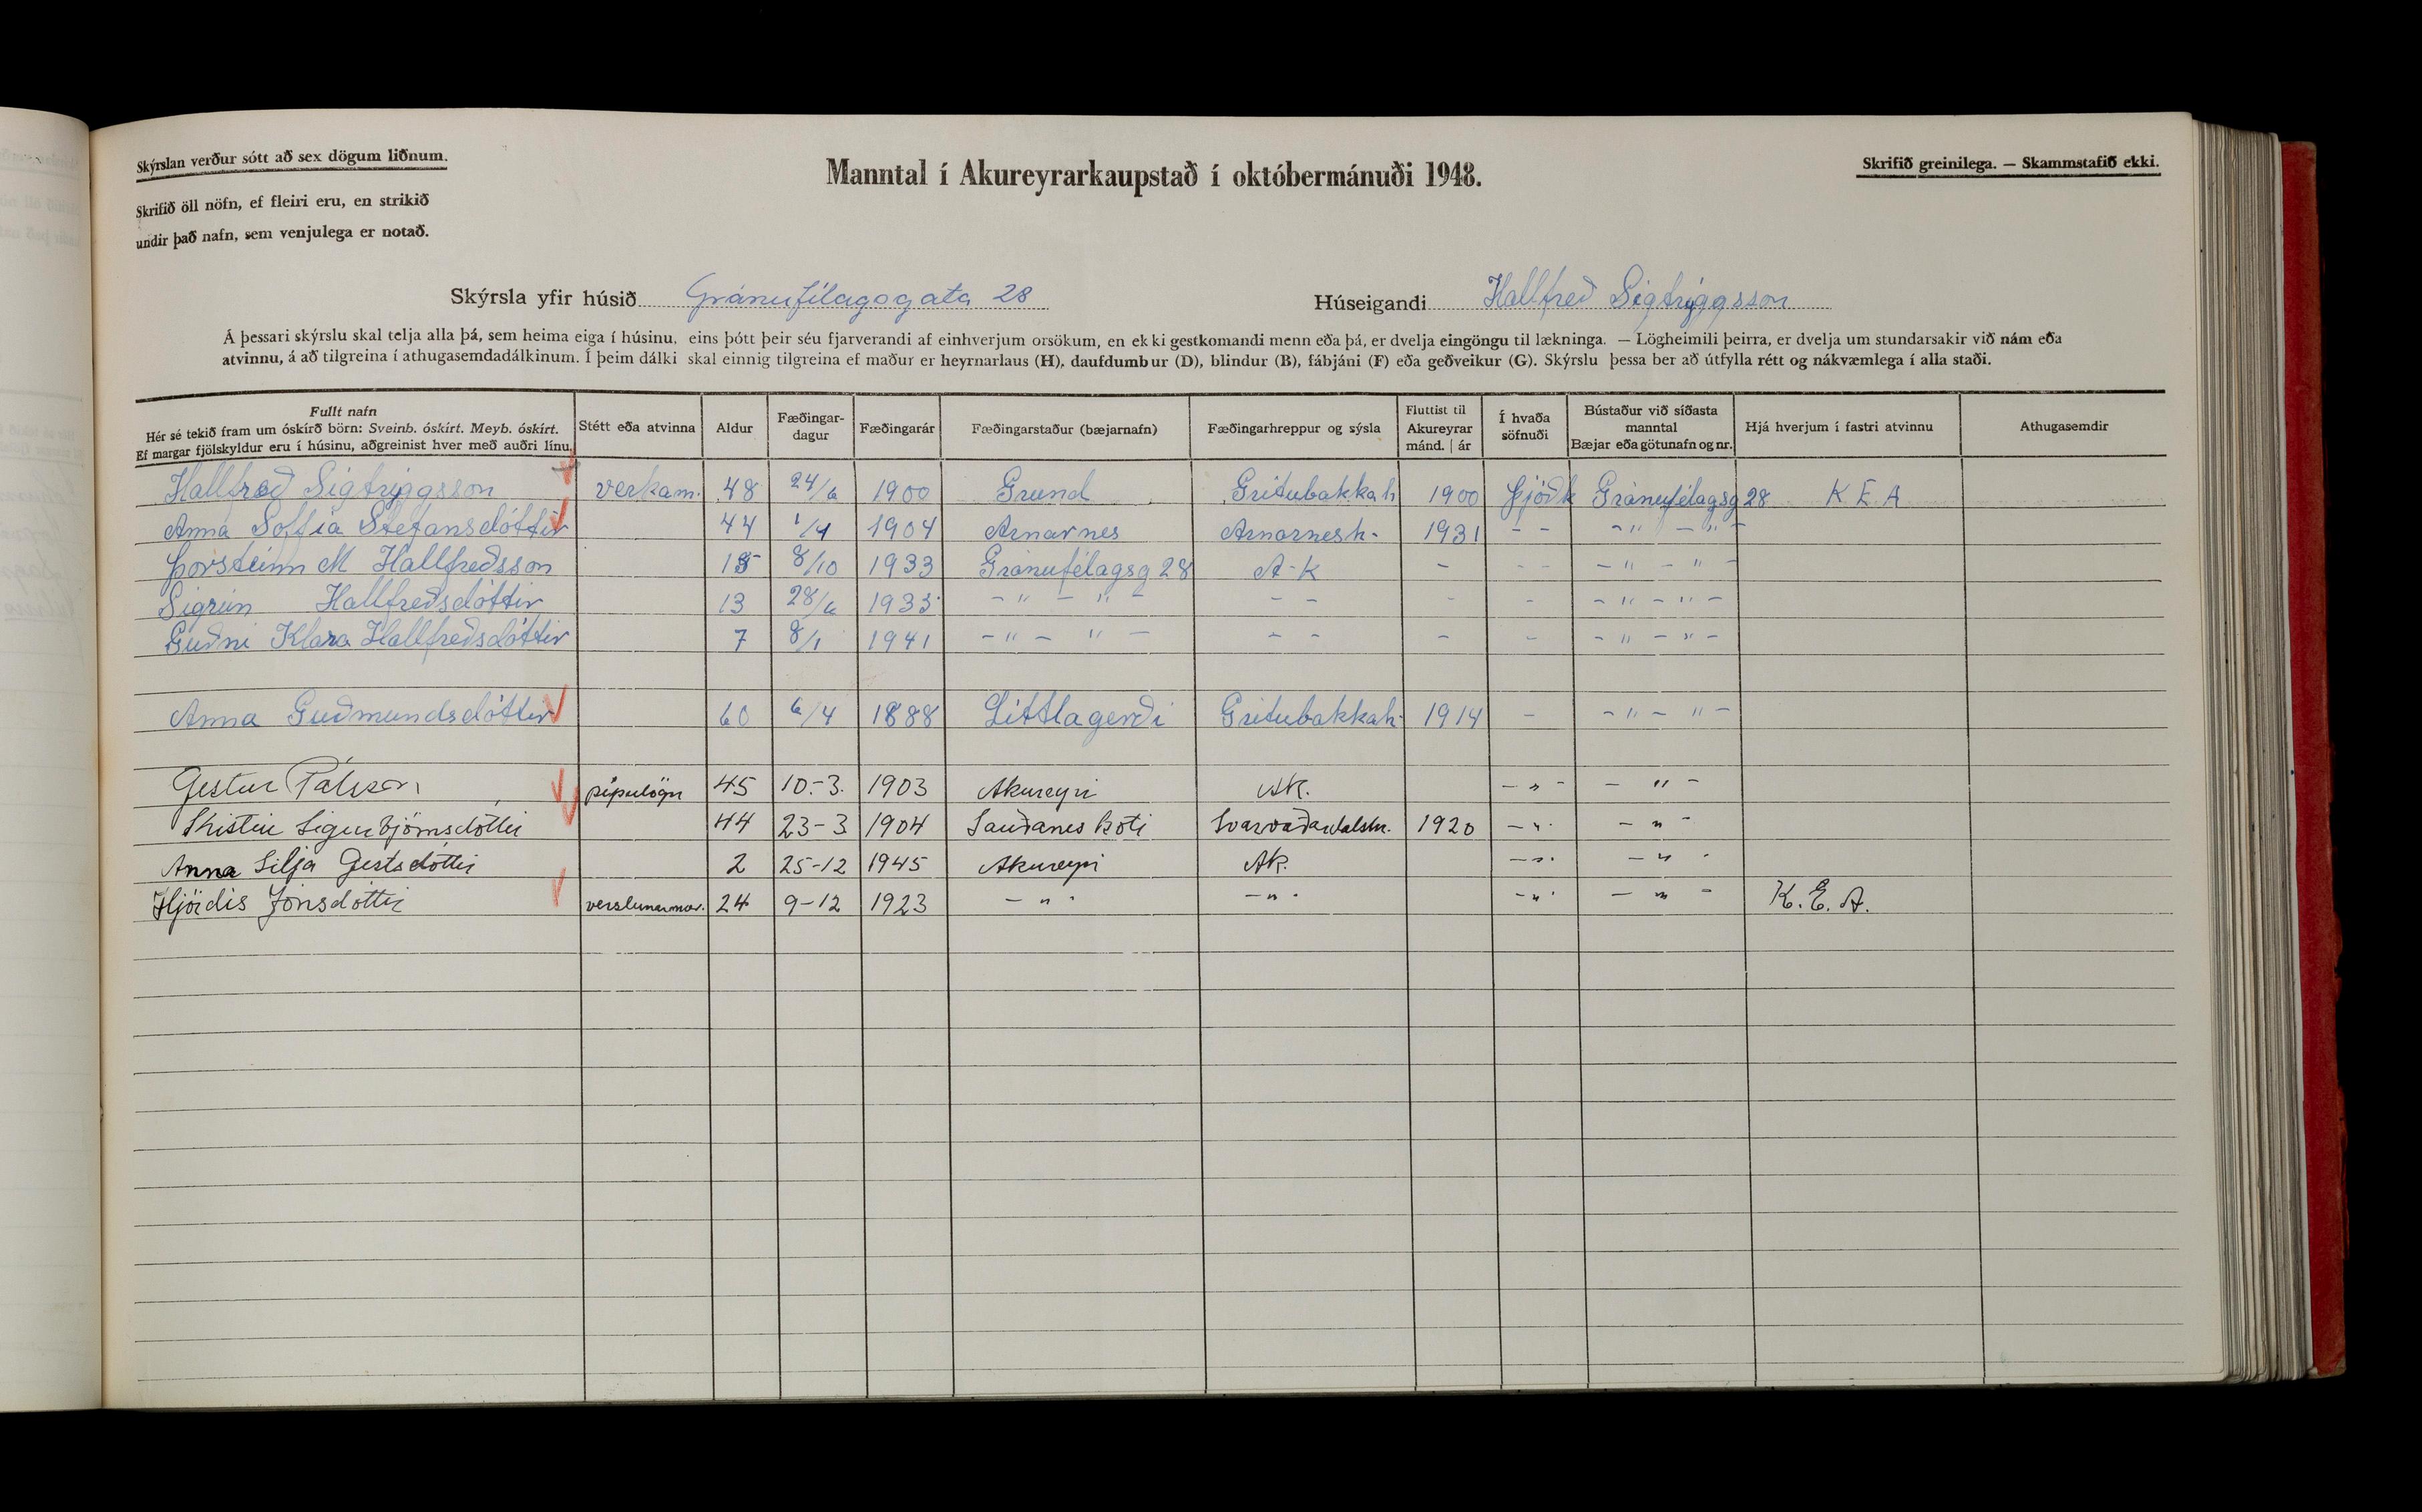 Skýrslan verður sótt að sex dögum liðnum.
Skrifið öll nöfn, ef fleiri eru, en strikið
undir það nafn, sem venjulega er notað.
Manntal í Akureyrarkaupstað í októbermánuði 1948.
Skrifið greinilega. — Skammstafið ekki.
Skýrsla yfir húsið Gránufélagsgata 28 Húseigandi Hallfreð Sigtriggsson
Á þessari skýrslu skal telja alla þá, sem heima eiga í húsinu, eins þótt þeir séu fjarverandi af einhverjum orsökum, en ekki gestkomandi menn eða þá, er dvelja eingöngu til lækninga. — Lögheimili þeirra, er dvelja um stundarsakir við nám eða
atvinnu, á að tilgreina í athugasemdadálkinum. Í þeim dálki skal einnig tilgreina ef maður er heyrnarlaus (H), daufdumbur (D), blindur (B), fábjáni (F) eða geðveikur (G). Skýrslu þessa ber að útfylla rétt og nákvæmlega í alla staði.
Fullt nafn
Hér sé tekið fram um óskírð börn: Sveinb. óskírt. Meyb. óskírt.
Ef margar fjölskyldur eru í húsinu, aðgreinist hver með auðri línu.
Stétt eða atvinna
Aldur
Fæðingar-
dagur
Fæðingarár
Fæðingarstaður (bæjarnafn)
Fæðingarhreppur og sýsla
Fluttist til
Akureyrar
mánd. | ár
Í hvaða
söfnuði
Bústaður við síðasta
manntal
Bæjar eða götunafn og nr.
Hjá hverjum í fastri atvinnu
Athugasemdir
Hallfreð Sigtriggsson verkam. 48 24/6 1900 Grund Gritubakkah 1900 Þjóðk Gránufélagsg 28 K E A
Anna Soffia Stefansdóttir 44 1/4 1904 Arnarnes Arnarnesh- 1931 - - - " - " -
Þorsteinn M Hallfreðsson 15 8/10 1933 Gránufélagsg 28 A-K - - - - " - " -
Sigrún Hallfreðsdóttir 13 28/6 1935 - " - " - - - - - - " - " -
Guðni Klara Hallfreðsdóttir 7 8/1 1941 - " - " - - - - - - " - " -
Anna Guðmundsdóttir 60 6/4 1888 Littlagerði Gritubakkah- 1914 - - " - " -
Gestur Pálsson pípulögn 45 10.-3. 1903 Akureyri AK. - " - - " -
Kristín Sigurbjörnsdóttir 44 23-3 1904 Sauðanes koti Svarvaðardalshr. 1920 - " - - " -
Anna Silja Gestsdóttir 2 25-12 1945 Akureyri Ak. - " - - " -
Hjördís Jónsdóttir verslunarmær. 24 9-12 1923 - " - - " - - " - - " - K. E. A.